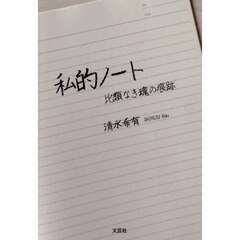 私的ノート
比類なき魂の痕跡
清水希有 SHIMIZU KEU
文芸社